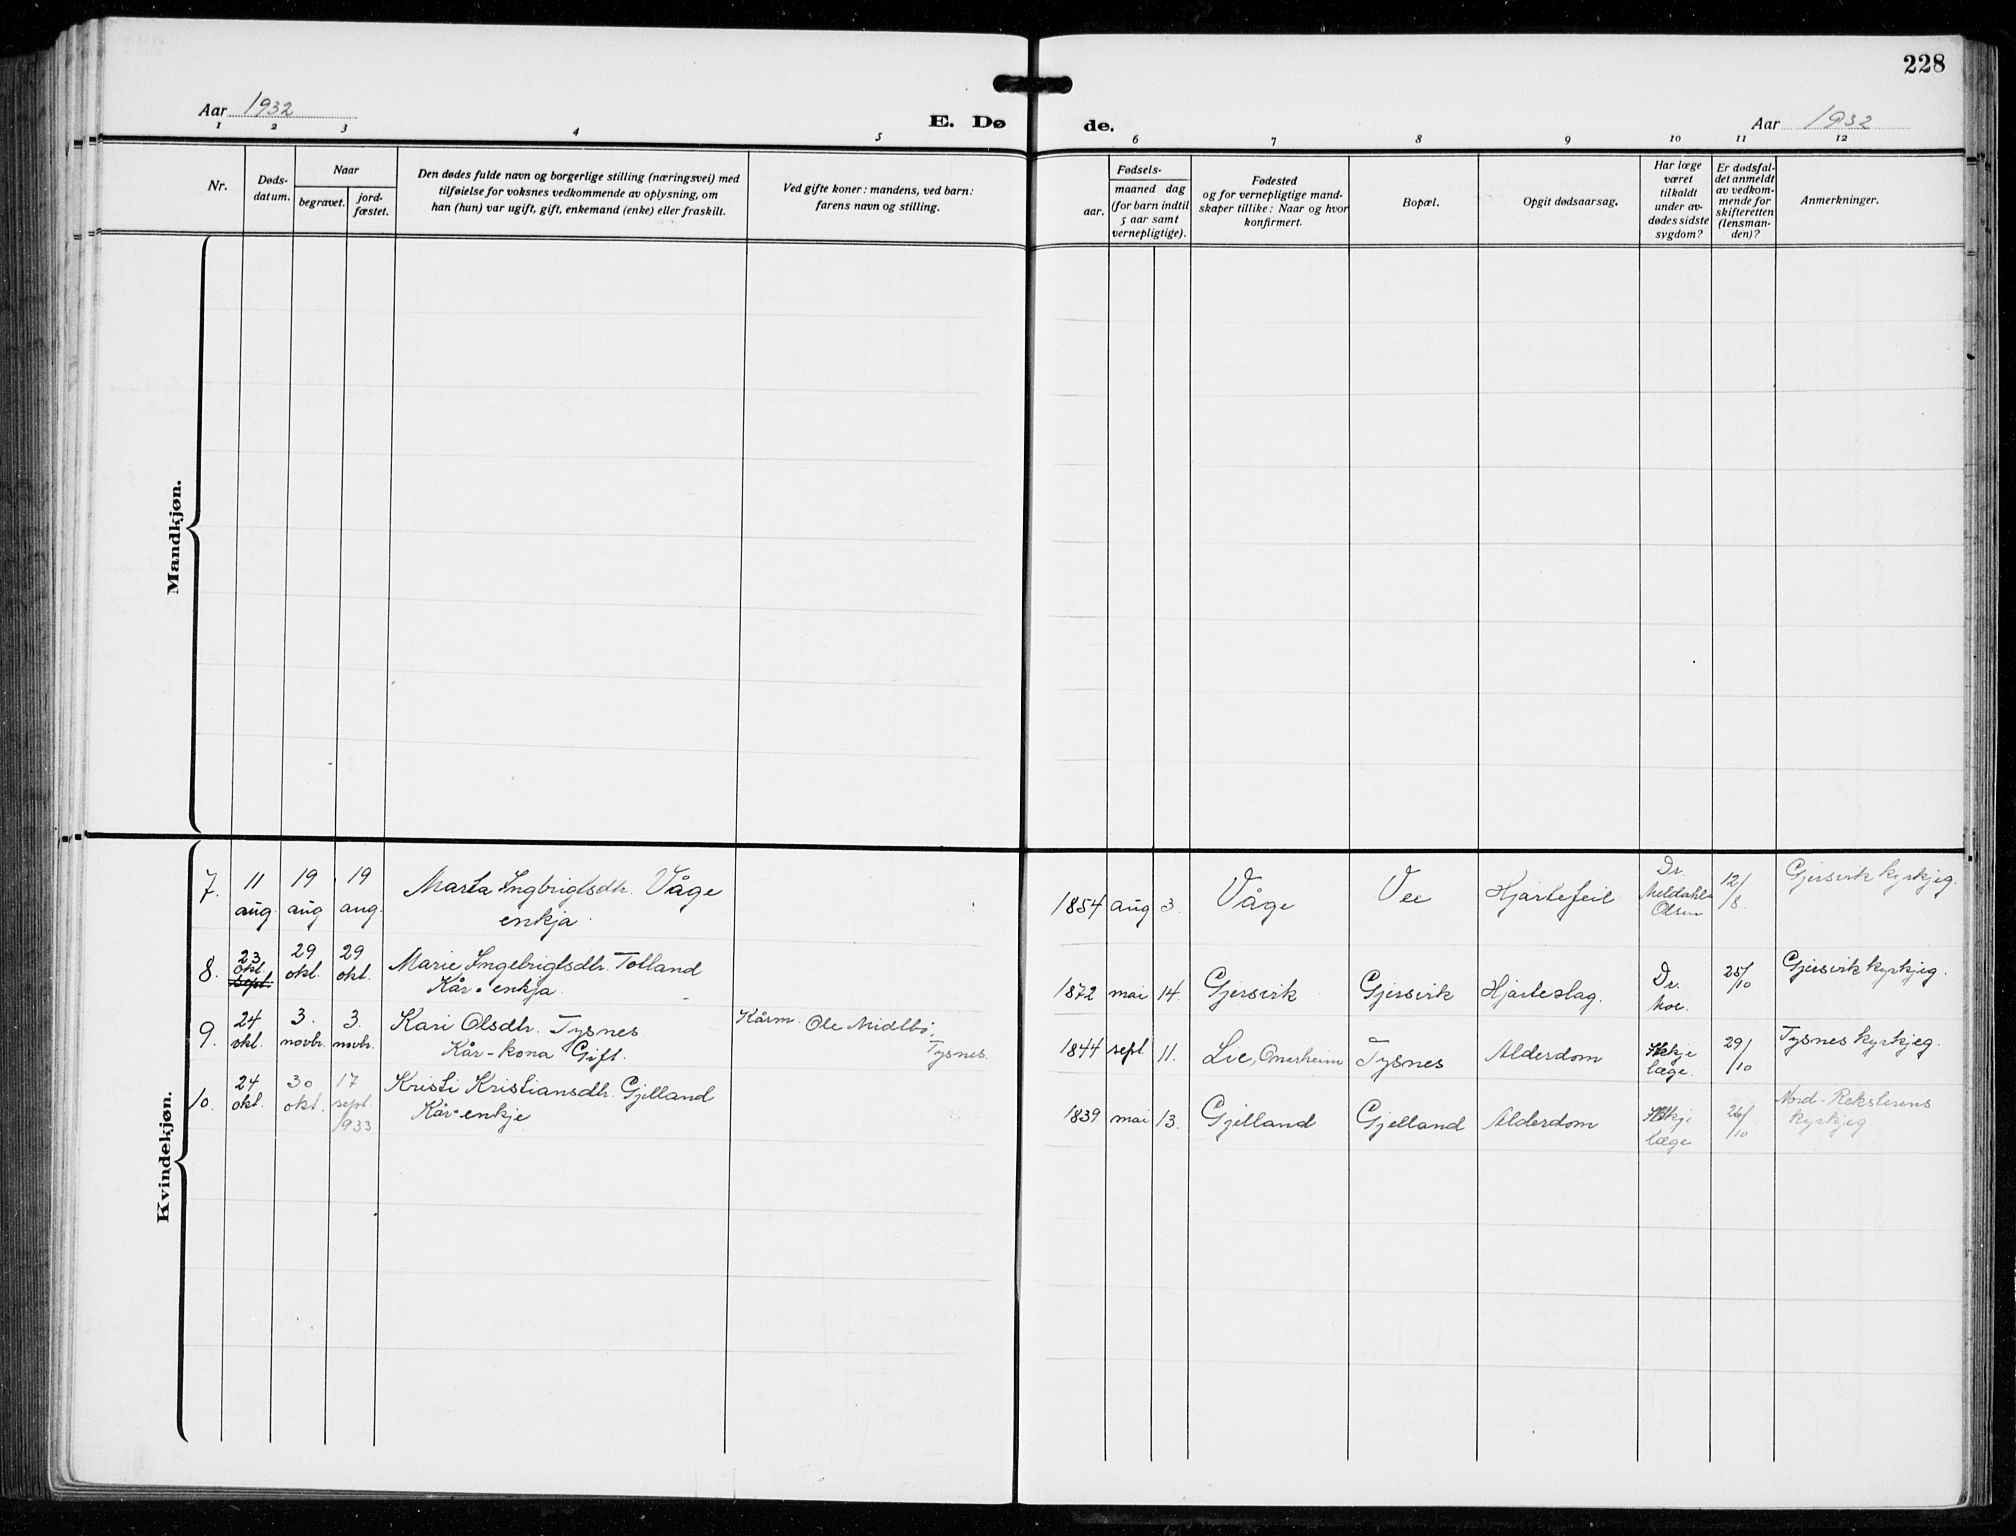 228
Aar 1932
E. Dø
de.
Aar 1932
1 2 3 4 5
6 7 8 9 10 11 12
Nr.
Døds-
datum.
Naar
begravet.
jord-
fæstet.
Den dødes fulde navn og borgerlige stilling (næringsvei) med
tilføielse for voksnes vedkommende av oplysning, om
han (hun) var ugift, gift, enkemand (enke) eller fraskilt.
Ved gifte koner: mandens, ved barn:
farens navn og stilling.
Fødsels-
aar.
maaned dag
(for barn indtil
5 aar samt
vernepligtige).
Fødested
og for vernepligtige mand-
skaper tillike: Naar og hvor
konfirmert.
Bopæl.
Opgit dødsaarsag.
Har læge
været
tilkaldt
under av-
dødes sidste
sygdom?
Er dødsfal-
det anmeldt
av vedkom-
mende for
skifteretten
(lensman-
den)?
Anmerkninger.
Mandkjøn.
Kvindekjøn.
7.
11
aug
19
aug
19
aug.
Marta Ingbrigtsdtr. Våge
enkja.
1854 aug 3.
Våge
Vee
Hjartefeil
Dr.
Meldahl
Olsen
12/
/8.
Gjersvik kyrkjeg.
8.
23
okt.
sept.
29
okt.
29
okt.
Marie Ingebrigtsdtr. Tolland
Kår-enkja.
1872 mai 14.
Gjersvik
Gjersvik
Hjarteslag.
Dr.
Moe.
25/
/10
Gjersvik kyrkjeg.
9.
24
okt.
3.
novbr.
3.
novbr.
Kari Olsdtr. Tysnes
Kår-kona Gift.
Kårm. Ole Midtbö,
Tysnes.
1844 sept 11.
Lie, Onerheim
Tysnes
Alderdom
Ikkje
læge.
29/
/10
Tysnes kyrkjeg.
10.
24
okt.
30
okt.
17
sept.
1933
Kristi Kristiansdtr. Gjelland
Kår-enkje
1839 mai 13.
Gjelland
Gjelland
Alderdom
Ikkje
læge
26/
/10
Nord-Reksterens
kyrkjeg